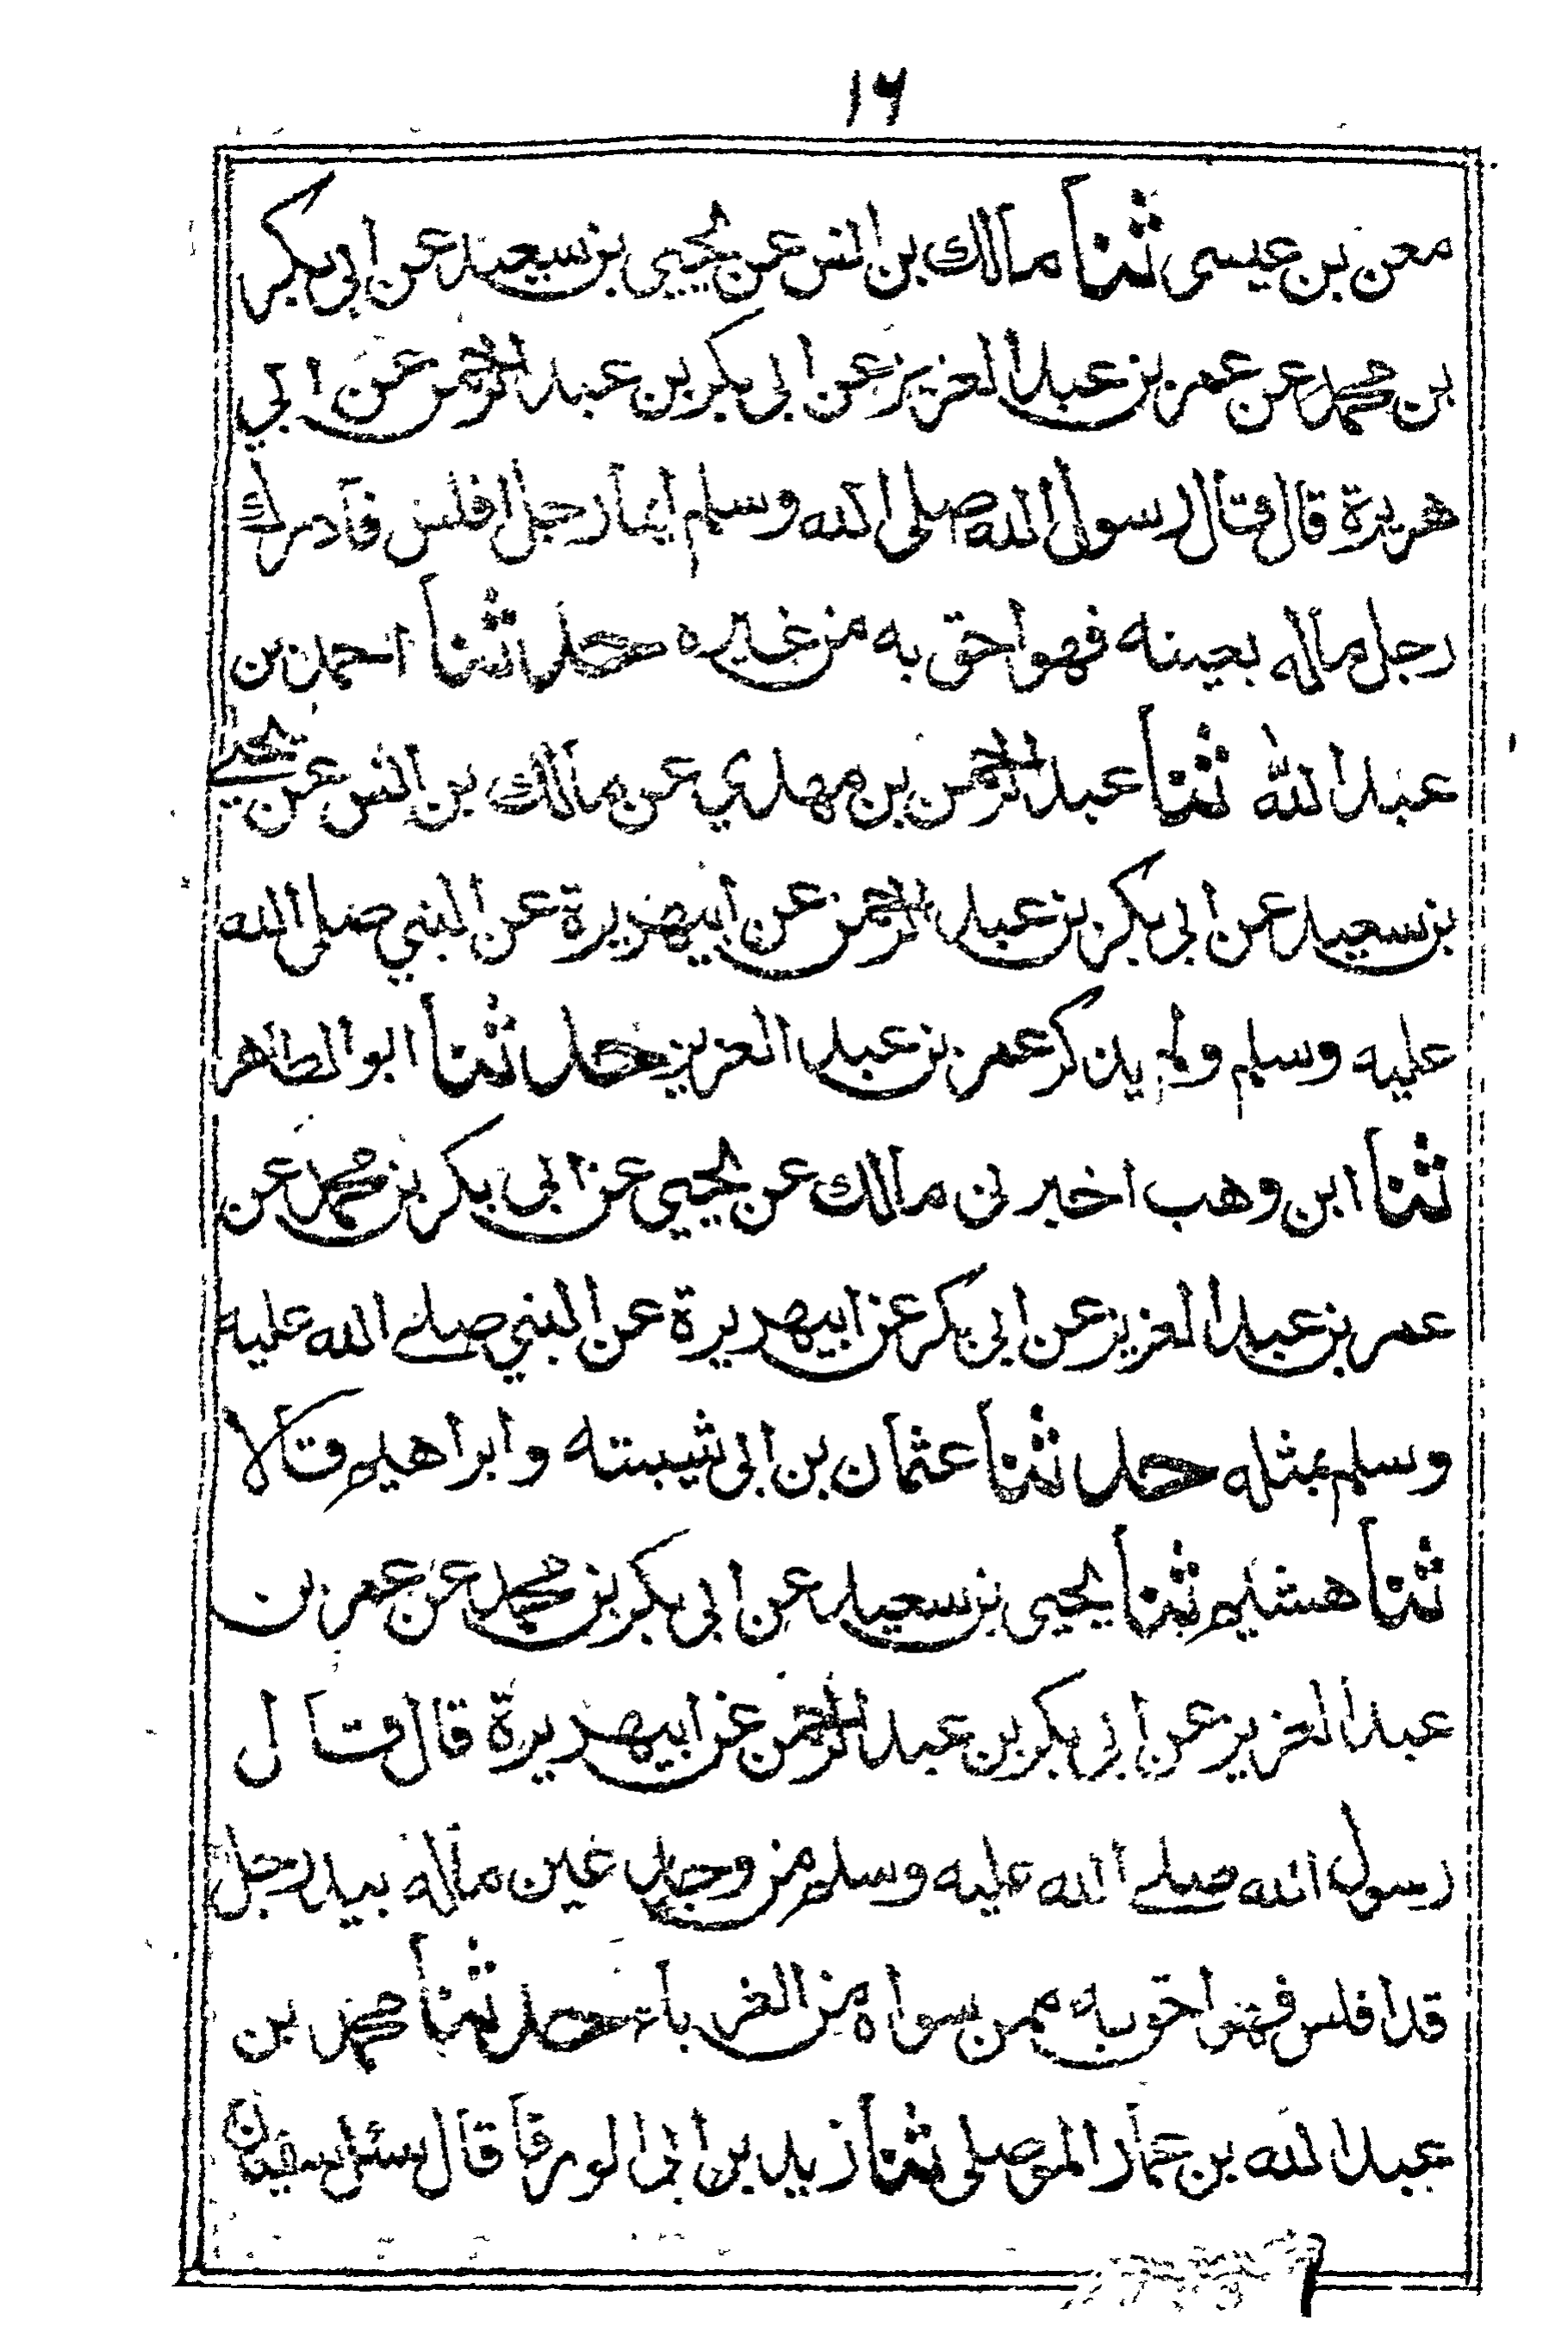 ١٦
معن بن عيسى ثنا مالك بن انس عن يحيى بن سعيد عن ابي بكر
بن محمد عن عمر بن عبد العزيز عن ابي بكر بن عبد الرحمن عن ابي
هريرة قال قال رسول الله صلى الله وسلم ايما رجل افلس فادرك
رجل ماله بعينه فهو احق به من غيره حدثنا احمد بن
عبد الله ثنا عبد الرحمن بن مهدي عن مالك بن انس عن يحيى
بن سعيد عن ابي بكر بن عبد الرحمن عن ابيهريرة عن النبي صلى الله
عليه وسلم ولم يذكر عمر بن عبد العزيز حدثنا ابو الطاهر
ثنا ابن وهب اخبرني مالك عن يحيى عن ابي بكر بن محمد عن
عمر بن عبد العزيز عن ابي بكر عن ابيهريرة عن النبي صلى الله عليه
وسلم بمثله حدثنا عثمان بن ابي شيبته وابراهيم قالا
ثنا هشيم ثنا يحيى بن سعيد عن ابي بكر بن محمد عن عمر بن
عبد العزيز عن ابي بكر بن عبد الرحمن عن ابيهريرة قال قال
رسول الله صلى الله عليه وسلم من وجد عين ماله بيد رجل
قد افلس فهو احق به ممن سواه من الغرباء حدثنا محمد بن
عبد الله بن عمار الموصلي ثنا زيد بن ابي الورقا قال سئل سفيان